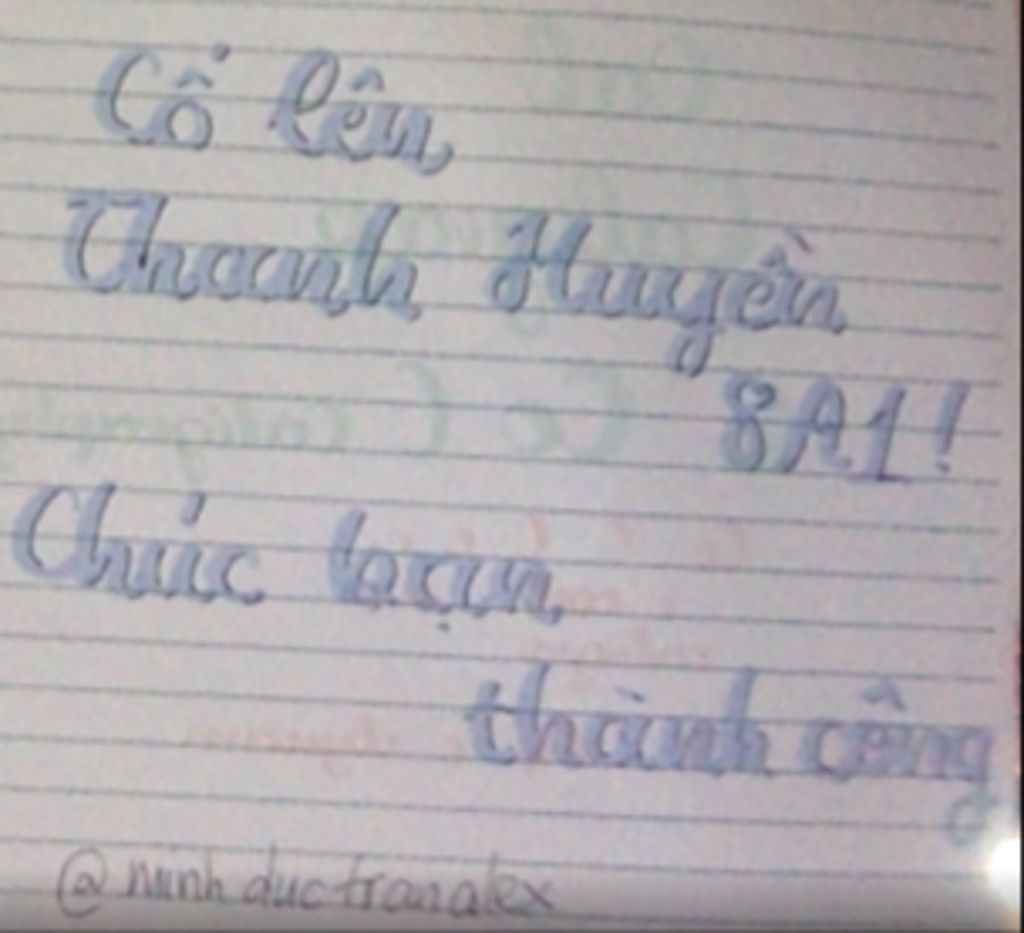 Cố lên,
Thanh Huyền
8A1!
Chúc bạn
thành công
@minhductranalex